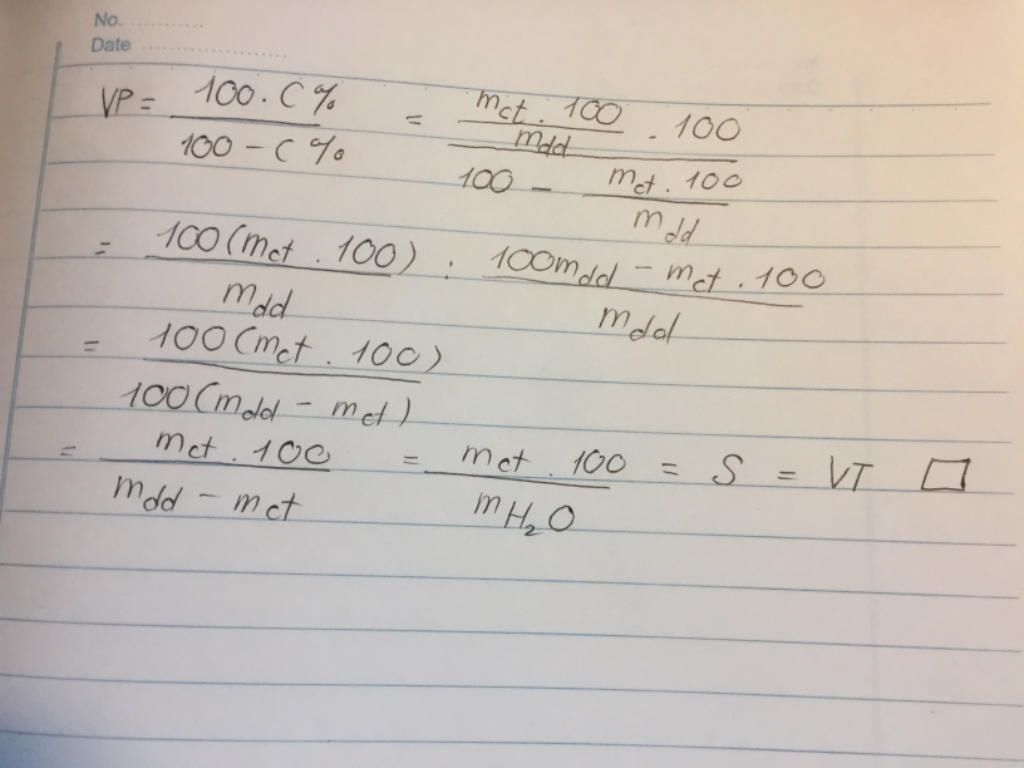 No. ............
Date ........................
VP = \frac{100 . C%}{100 - C%} = \frac{\frac{m_{ct} . 100}{m_{dd}} . 100}{100 - \frac{m_{ct} . 100}{m_{dd}}}
= \frac{100(m_{ct} . 100)}{m_{dd}} : \frac{100m_{dd} - m_{ct} . 100}{m_{dd}}
= \frac{100(m_{ct} . 100)}{100(m_{dd} - m_{ct})}
= \frac{m_{ct} . 100}{m_{dd} - m_{ct}} = \frac{m_{ct} . 100}{m_{H_2O}} = S = VT □